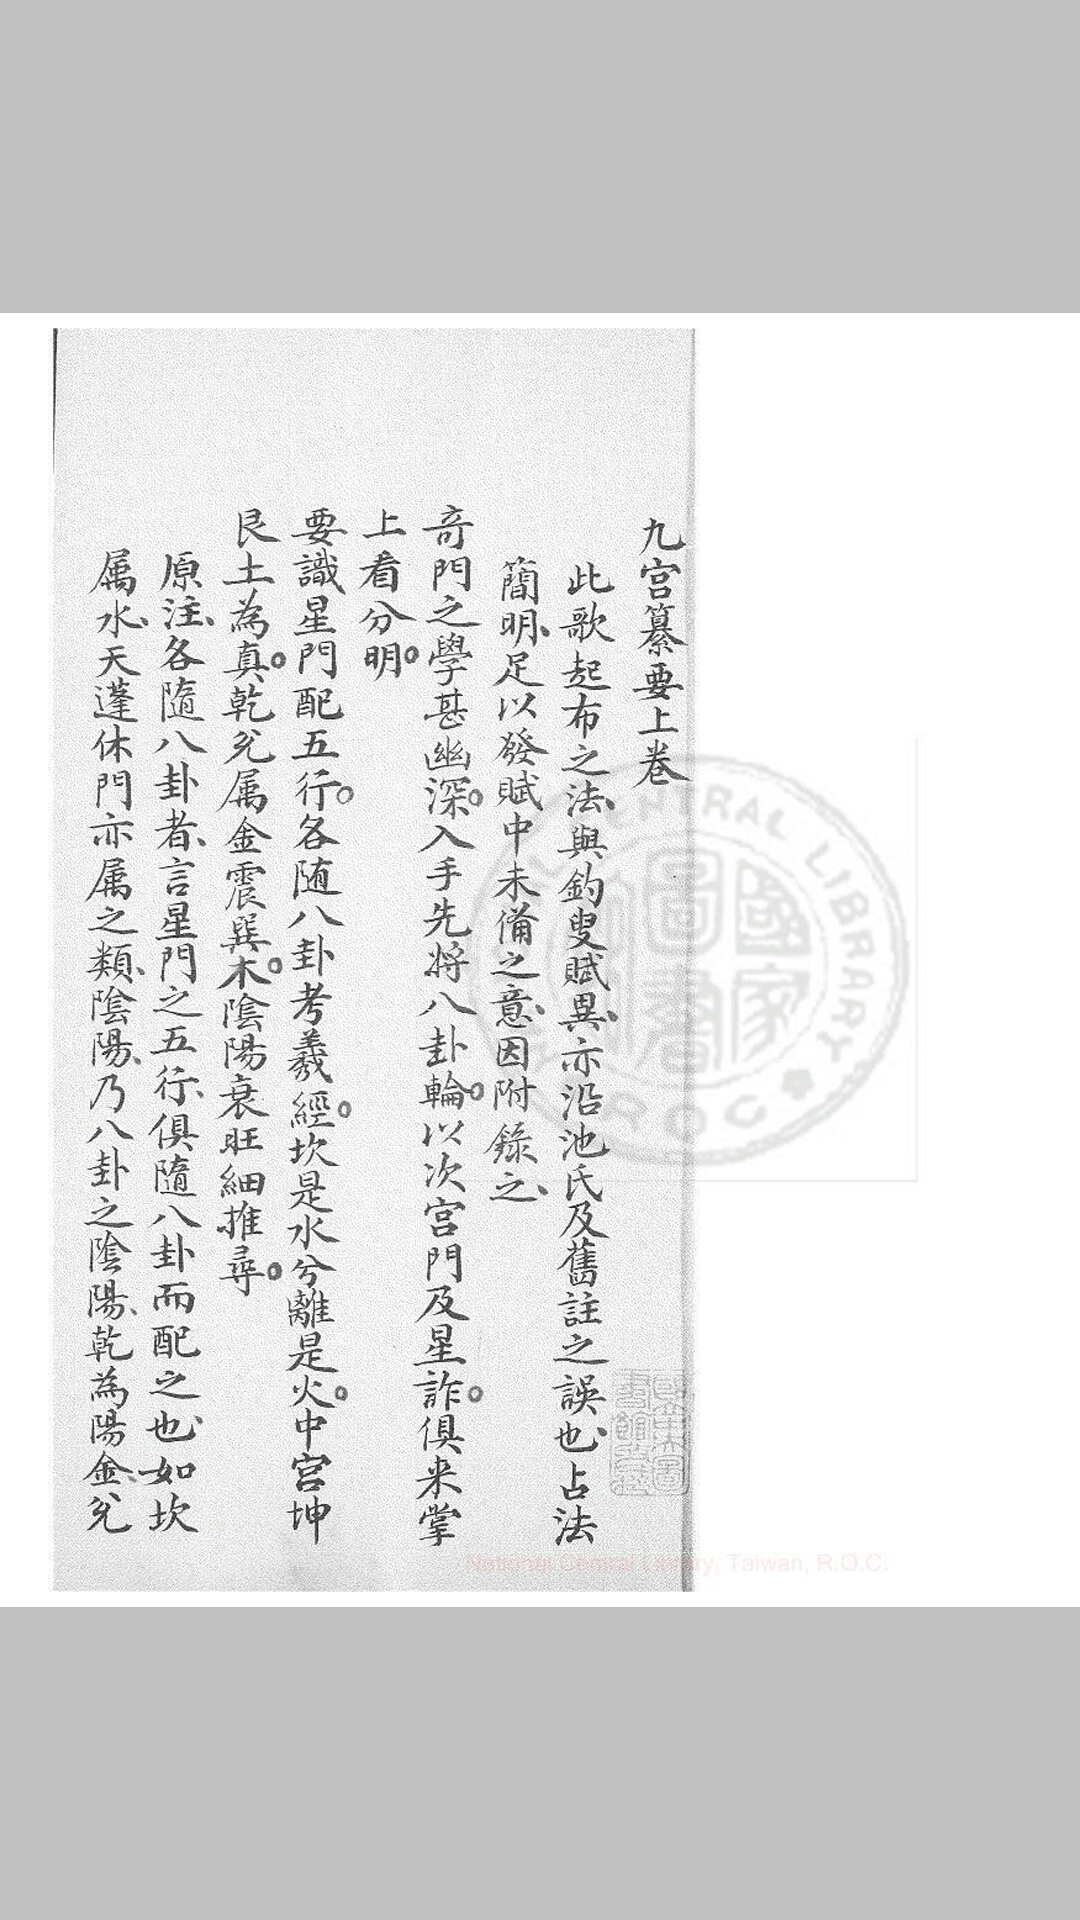 九宫纂要上卷
此歌起布之法、與釣叟賦異、亦沿池氏及舊註之誤也、占法
簡明、足以發賦中未備之意、因附錄之、
奇門之學甚幽深。入手先將八卦輪。以次宮門及星詐。俱来掌
上看分明。
要識星門配五行。各随八卦考羲經。坎是水兮離是火。中宮坤
艮土為真。乾兌属金震巽木。陰陽衰旺細推尋。
原注、各隨八卦者、言星門之五行、俱隨八卦而配之也、如坎
属水、天蓬休門亦属之類、陰陽、乃八卦之陰陽、乾為陽金、兌
CENTRAL LIBRARY
R.O.C
國家圖書
National Central Library, Taiwan, R.O.C.